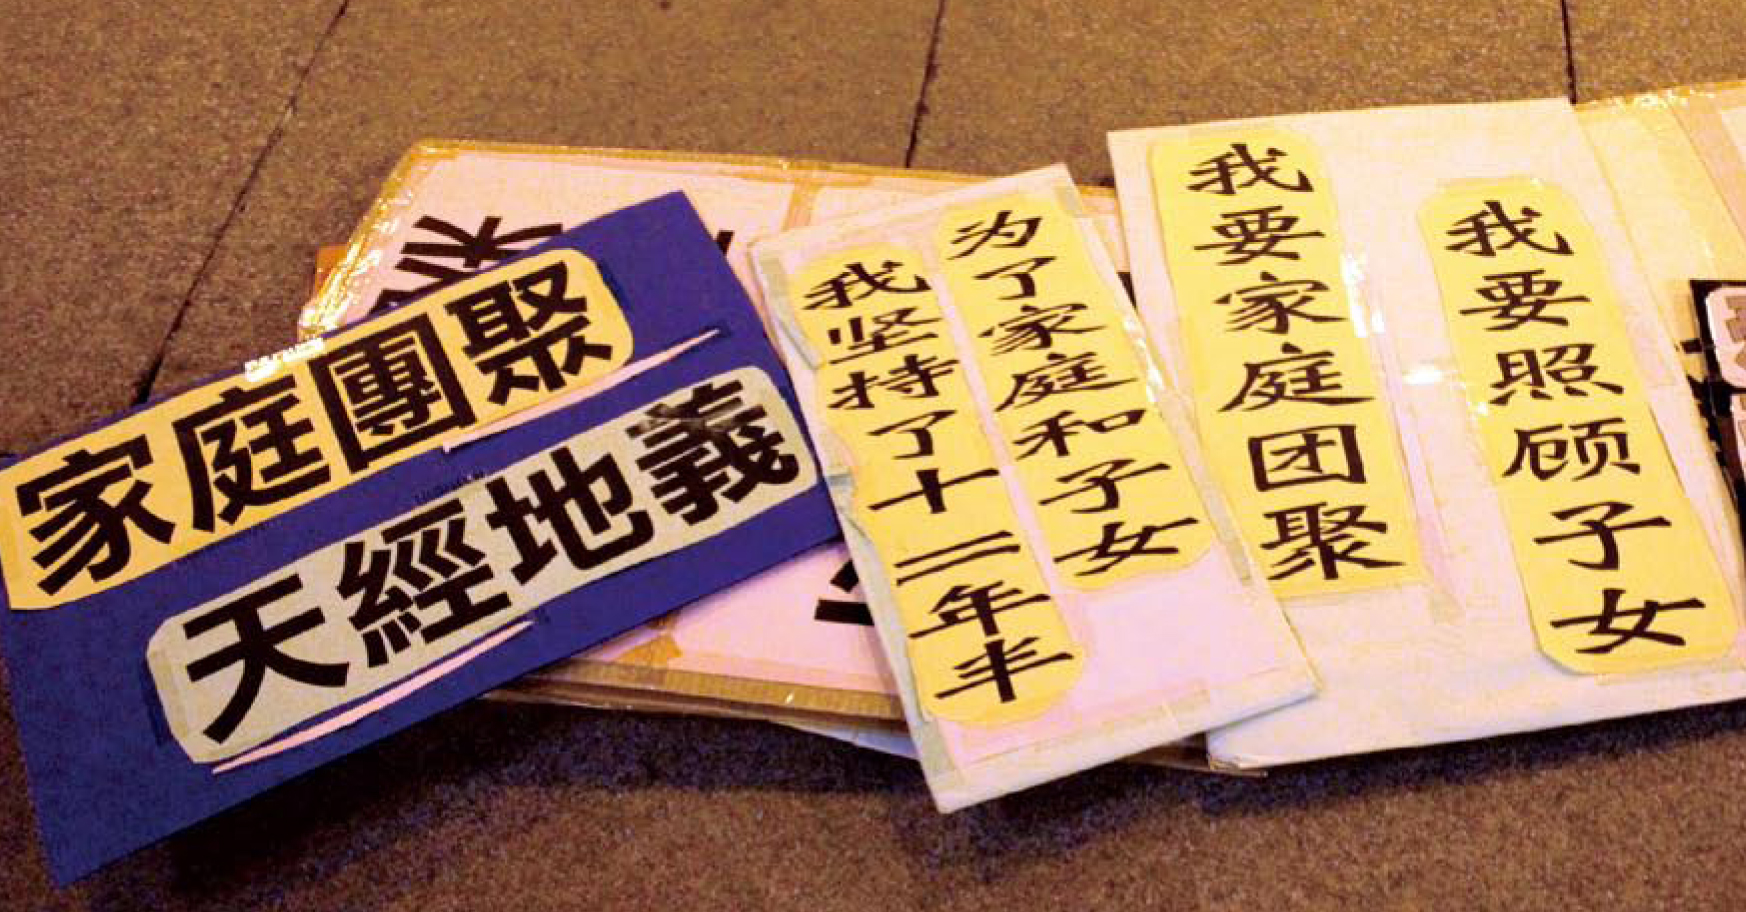 家庭團聚
天經地義
为了家庭和子女
我坚持了十二年半
我要家庭团聚
我要照顾子女